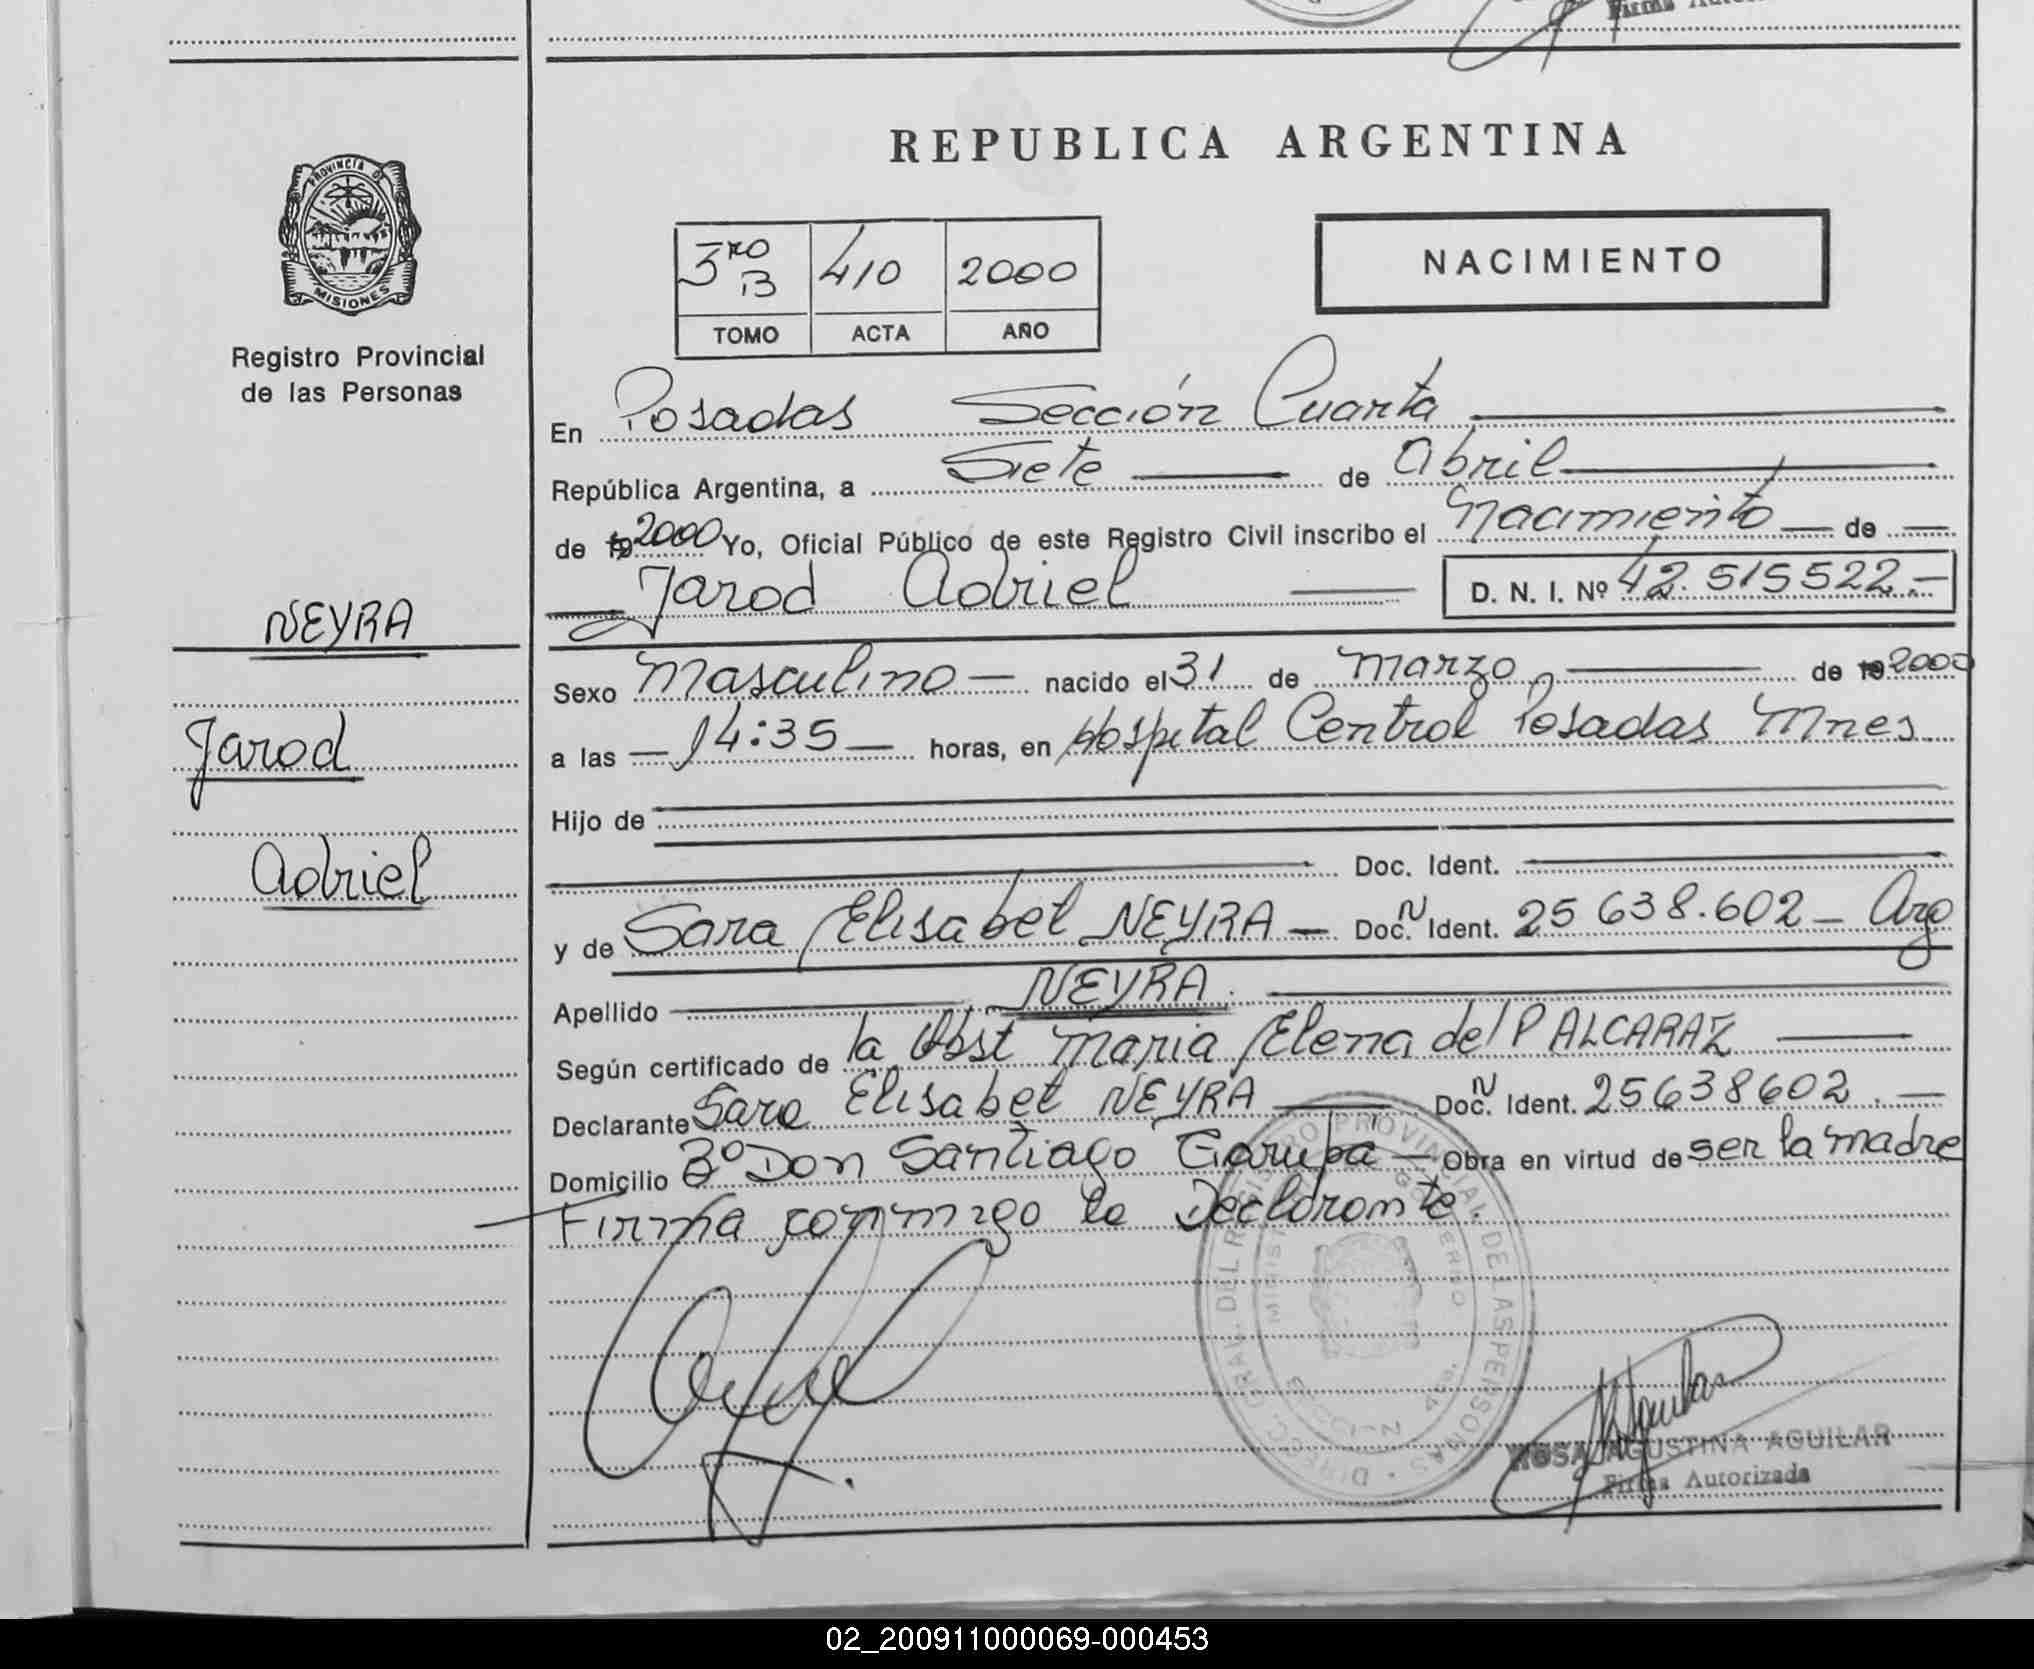 Firma
REPUBLICA ARGENTINA
PROVINCIA DE
MISIONES
Registro Provincial
de las Personas
3ro B 410 2000
TOMO ACTA AÑO
NACIMIENTO
En Posadas Sección Cuarta
República Argentina, a Siete de Abril
de 19 2000 Yo, Oficial Público de este Registro Civil inscribo el Nacimiento de
Jarod Adriel D. N. I. Nº 42.515522.-
NEYRA
Jarod
Adriel
Sexo Masculino nacido el 31 de Marzo de 19 2000
a las 14:35 horas, en Hospital Central Posadas Mnes
Hijo de
Doc. Ident.
y de Sara Elisabet NEYRA Doc. N Ident. 25 638.602 - Arg
Apellido NEYRA.
Según certificado de la Obst Maria Elena del P ALCARAZ
Declarante Sara Elisabet NEYRA Doc. N Ident. 25638602.-
Domicilio Bº Don Santiago Garupa Obra en virtud de ser la madre
Firma conmigo la Declarante.
DIRECC. GRAL. DEL REGISTRO PROVINCIAL DE LAS PERSONAS
GOBIERNO
SECCION 4ta.
ROSA AGUSTINA AGUILAR
Firma Autorizada
02_200911000069-000453